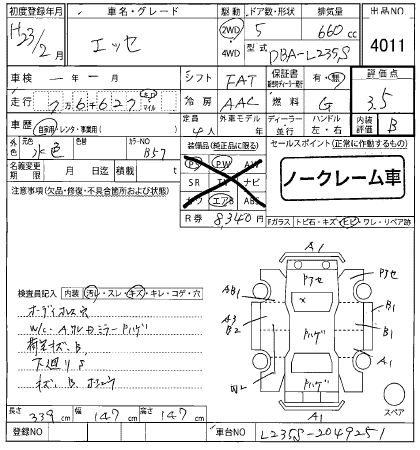 初度登録年月 車名・グレード 駆動 ドア数・形状 排気量 出品NO
H23/2月 エッセ 2WD 4WD 5 660 cc 4011
型式 DBA-L235S
車検 ー年ー月 シフト FAT 保証書 有・無 評価点
走行 7万6千627 km マイル 冷房 AAC 燃料 G 3.5
車歴 自家用・レンタ・事業用( ) 定員 4人 外車モデル 年 ディーラー 並行 ハンドル 左・右 内装評価 B
外色 元色 水色 色替 カラーNO B57
装備品(純正品に限る) セールスポイント(正常に作動するもの)
名義変更期限 月 日迄 積載量 t
PS PW AW
SR TV ナビ
カワ エアB ABS
ノークレーム車
注意事項(欠品・修復・不具合箇所および状態)
R券 8,340円
Fガラス トビ石・キズ・ヒビ・ワレ・リペア跡
A1
アセ
AB1
A3
B2
B1
A1
ハゲ
A1
スペア
検査員記入 内装 汚レ・スレ・キズ・キレ・コゲ・穴
オーディオレス穴
荷室キズ、B
下廻りS
キズ、B
長さ 339 cm 幅 147 cm 高さ 147 cm
登録NO 車台NO L235S-2049251